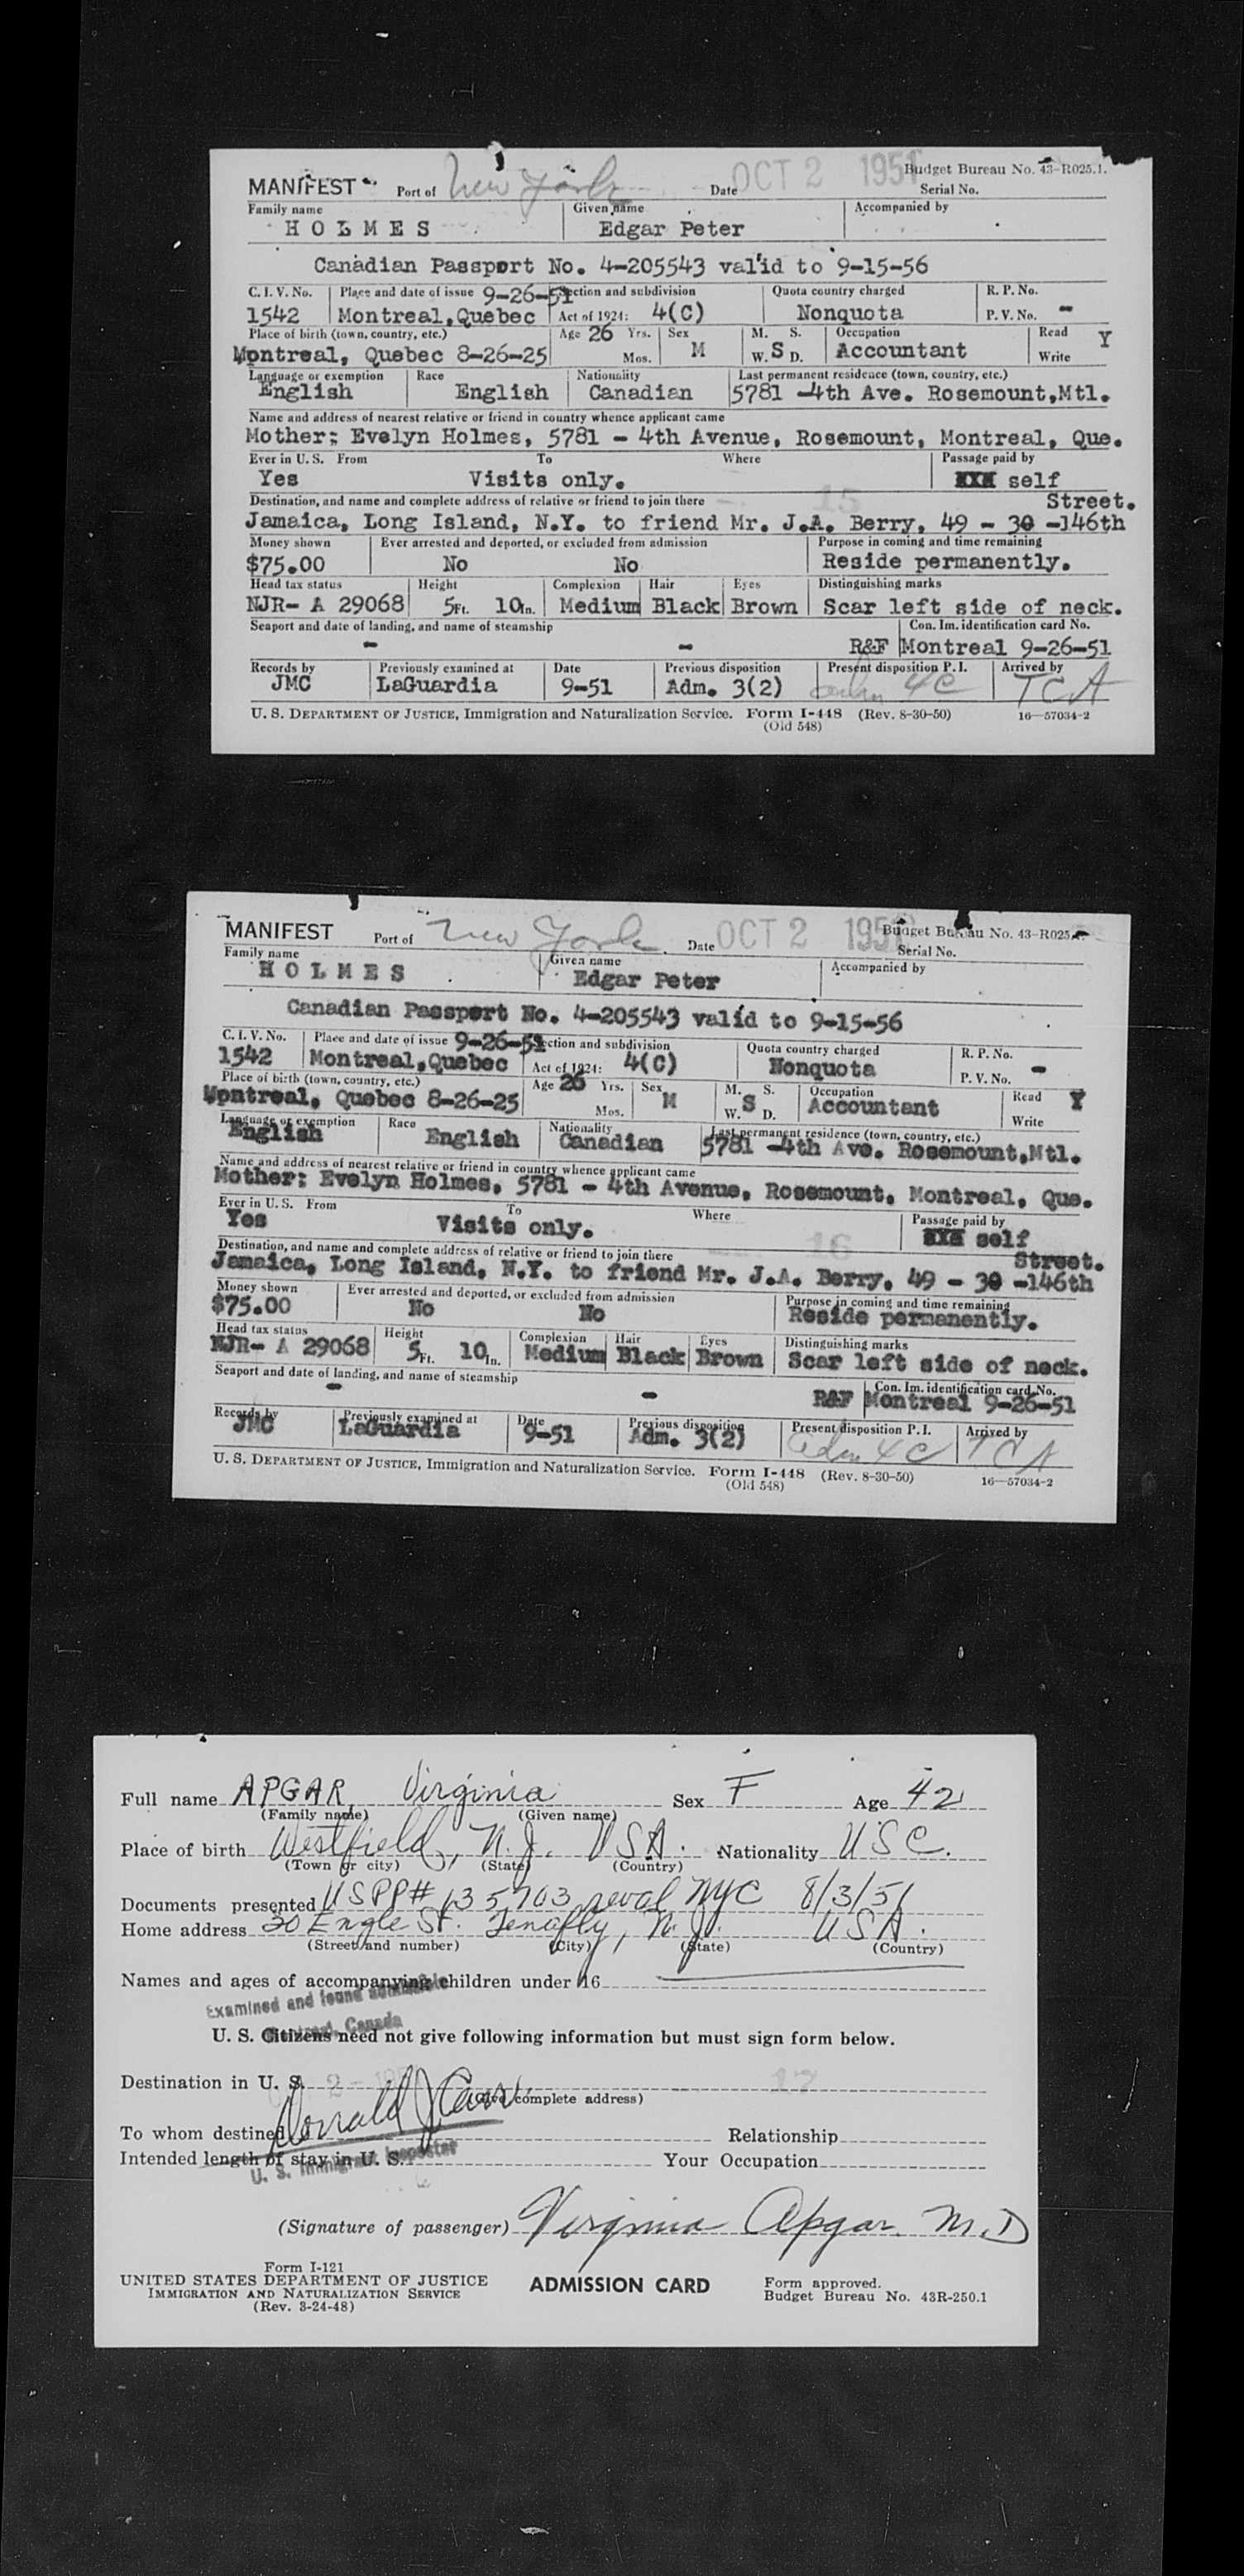 MANIFEST Port of New York Date OCT 2 1951 Budget Bureau No. 43-R025.1.
Serial No.
Family name Given name Accompanied by
HOLMES Edgar Peter
Canadian Passport No. 4-205543 valid to 9-15-56
C. I. V. No. Place and date of issue 9-26-51 Section and subdivision Quota country charged R. P. No.
1542 Montreal,Quebec Act of 1924: 4(C) Nonquota P. V. No. -
Place of birth (town, country, etc.) Age 26 Yrs. Sex M. S. Occupation Read Y
Montreal, Quebec 8-26-25 Mos. M W. S D. Accountant Write
Language or exemption Race Nationality Last permanent residence (town, country, etc.)
English English Canadian 5781 -4th Ave. Rosemount,Mtl.
Name and address of nearest relative or friend in country whence applicant came
Mother: Evelyn Holmes, 5781 - 4th Avenue, Rosemount, Montreal, Que.
Ever in U. S. From To Where Passage paid by
Yes Visits only. XXX self
Destination, and name and complete address of relative or friend to join there 15 Street.
Jamaica, Long Island, N.Y. to friend Mr. J.A. Berry, 49 - 30 -146th
Money shown Ever arrested and deported, or excluded from admission Purpose in coming and time remaining
$75.00 No No Reside permanently.
Head tax status Height Complexion Hair Eyes Distinguishing marks
NJR- A 29068 5Ft. 10In. Medium Black Brown Scar left side of neck.
Seaport and date of landing, and name of steamship Con. Im. identification card No.
- - R&F Montreal 9-26-51
Records by Previously examined at Date Previous disposition Present disposition P. I. Arrived by
JMC LaGuardia 9-51 Adm. 3(2) adm 4C TCA
U. S. DEPARTMENT OF JUSTICE, Immigration and Naturalization Service. Form I-448 (Rev. 8-30-50) 16-57034-2
(Old 548)
MANIFEST Port of New York Date OCT 2 195 Budget Bureau No. 43-R025.
Serial No.
Family name Given name Accompanied by
HOLMES Edgar Peter
Canadian Passport No. 4-205543 valid to 9-15-56
C. I. V. No. Place and date of issue 9-26-51 Section and subdivision Quota country charged R. P. No.
1542 Montreal,Quebec Act of 1924: 4(C) Nonquota P. V. No. -
Place of birth (town, country, etc.) Age 26 Yrs. Sex M. S. Occupation Read Y
Montreal, Quebec 8-26-25 Mos. M W. S D. Accountant Write
Language or exemption Race Nationality Last permanent residence (town, country, etc.)
English English Canadian 5781 -4th Ave. Rosemount,Mtl.
Name and address of nearest relative or friend in country whence applicant came
Mother: Evelyn Holmes, 5781 - 4th Avenue, Rosemount, Montreal, Que.
Ever in U. S. From To Where Passage paid by
Yes Visits only. XXX self
Destination, and name and complete address of relative or friend to join there 16 Street.
Jamaica, Long Island, N.Y. to friend Mr. J.A. Berry, 49 - 30 -146th
Money shown Ever arrested and deported, or excluded from admission Purpose in coming and time remaining
$75.00 No No Reside permanently.
Head tax status Height Complexion Hair Eyes Distinguishing marks
NJR- A 29068 5Ft. 10In. Medium Black Brown Scar left side of neck.
Seaport and date of landing, and name of steamship Con. Im. identification card No.
- - R&F Montreal 9-26-51
Records by Previously examined at Date Previous disposition Present disposition P. I. Arrived by
JMC LaGuardia 9-51 Adm. 3(2) adm 4C TCA
U. S. DEPARTMENT OF JUSTICE, Immigration and Naturalization Service. Form I-448 (Rev. 8-30-50) 16-57034-2
(Old 548)
Full name APGAR, Virginia Sex F Age 42
(Family name) (Given name)
Place of birth Westfield, N.J. USA. Nationality USC.
(Town or city) (State) (Country)
Documents presented USPP# 135703 NYC 8/3/51
Home address 30 Engle St. Tenafly, N.J. USA.
(Street and number) (City) (State) (Country)
Names and ages of accompanying children under 16
Examined and found admissible
Montreal, Canada
U. S. Citizens need not give following information but must sign form below.
Destination in U. S.
(Give complete address) 17
Donald J Carr
To whom destined Relationship
Intended length of stay in U. S. Your Occupation
U. S. Immigrant Inspector
(Signature of passenger) Virginia Apgar M.D
Form I-121
UNITED STATES DEPARTMENT OF JUSTICE ADMISSION CARD Form approved.
IMMIGRATION AND NATURALIZATION SERVICE Budget Bureau No. 43R-250.1
(Rev. 3-24-48)